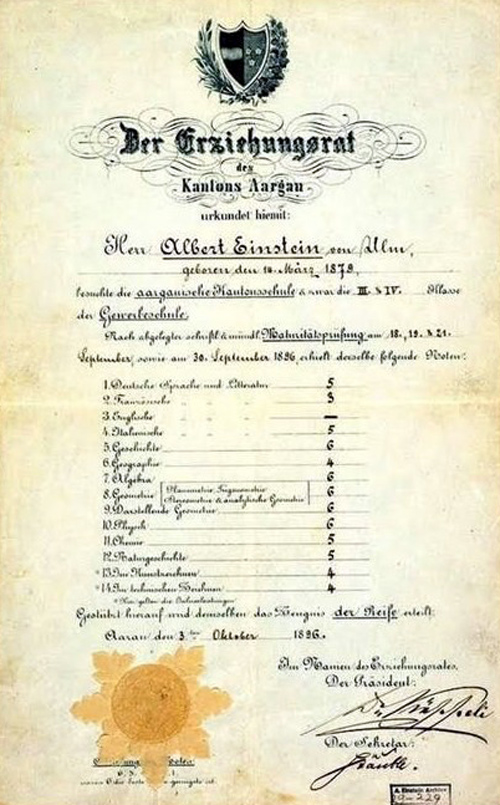 Der Erziehungsrat
des
Kantons Aargau
urkundet hiemit:
Herr Albert Einstein von Ulm,
geboren den 14. März 1879,
besuchte die aargauische Kantonsschule & zwar die III. & IV. Klasse
der Gewerbeschule.
Nach abgelegter schriftl. & mündl. Maturitätsprüfung am 18., 19. & 21.
September, sowie am 30. September 1896, erhielt derselbe folgende Noten:
1. Deutsche Sprache und Litteratur 5
2. Französische " " " 3
3. Englische " " " —
4. Italienische " " " 5
5. Geschichte 6
6. Geographie 4
7. Algebra 6
8. Geometrie [Planimetrie, Trigonometrie Stereometrie & analytische Geometrie] 6
9. Darstellende Geometrie 6
10. Physik 6
11. Chemie 5
12. Naturgeschichte 5
* 13. Im Kunstzeichnen 4
* 14. Im technischen Zeichnen 4
* Hier gelten die Jahresleistungen
Gestützt hierauf wird demselben das Zeugnis der Reife erteilt.
Aarau den 3ten Oktober 1896.
Im Namen des Erziehungsrates,
Der Präsident:
Der Sekretär:
A. Einstein Archive
29-229